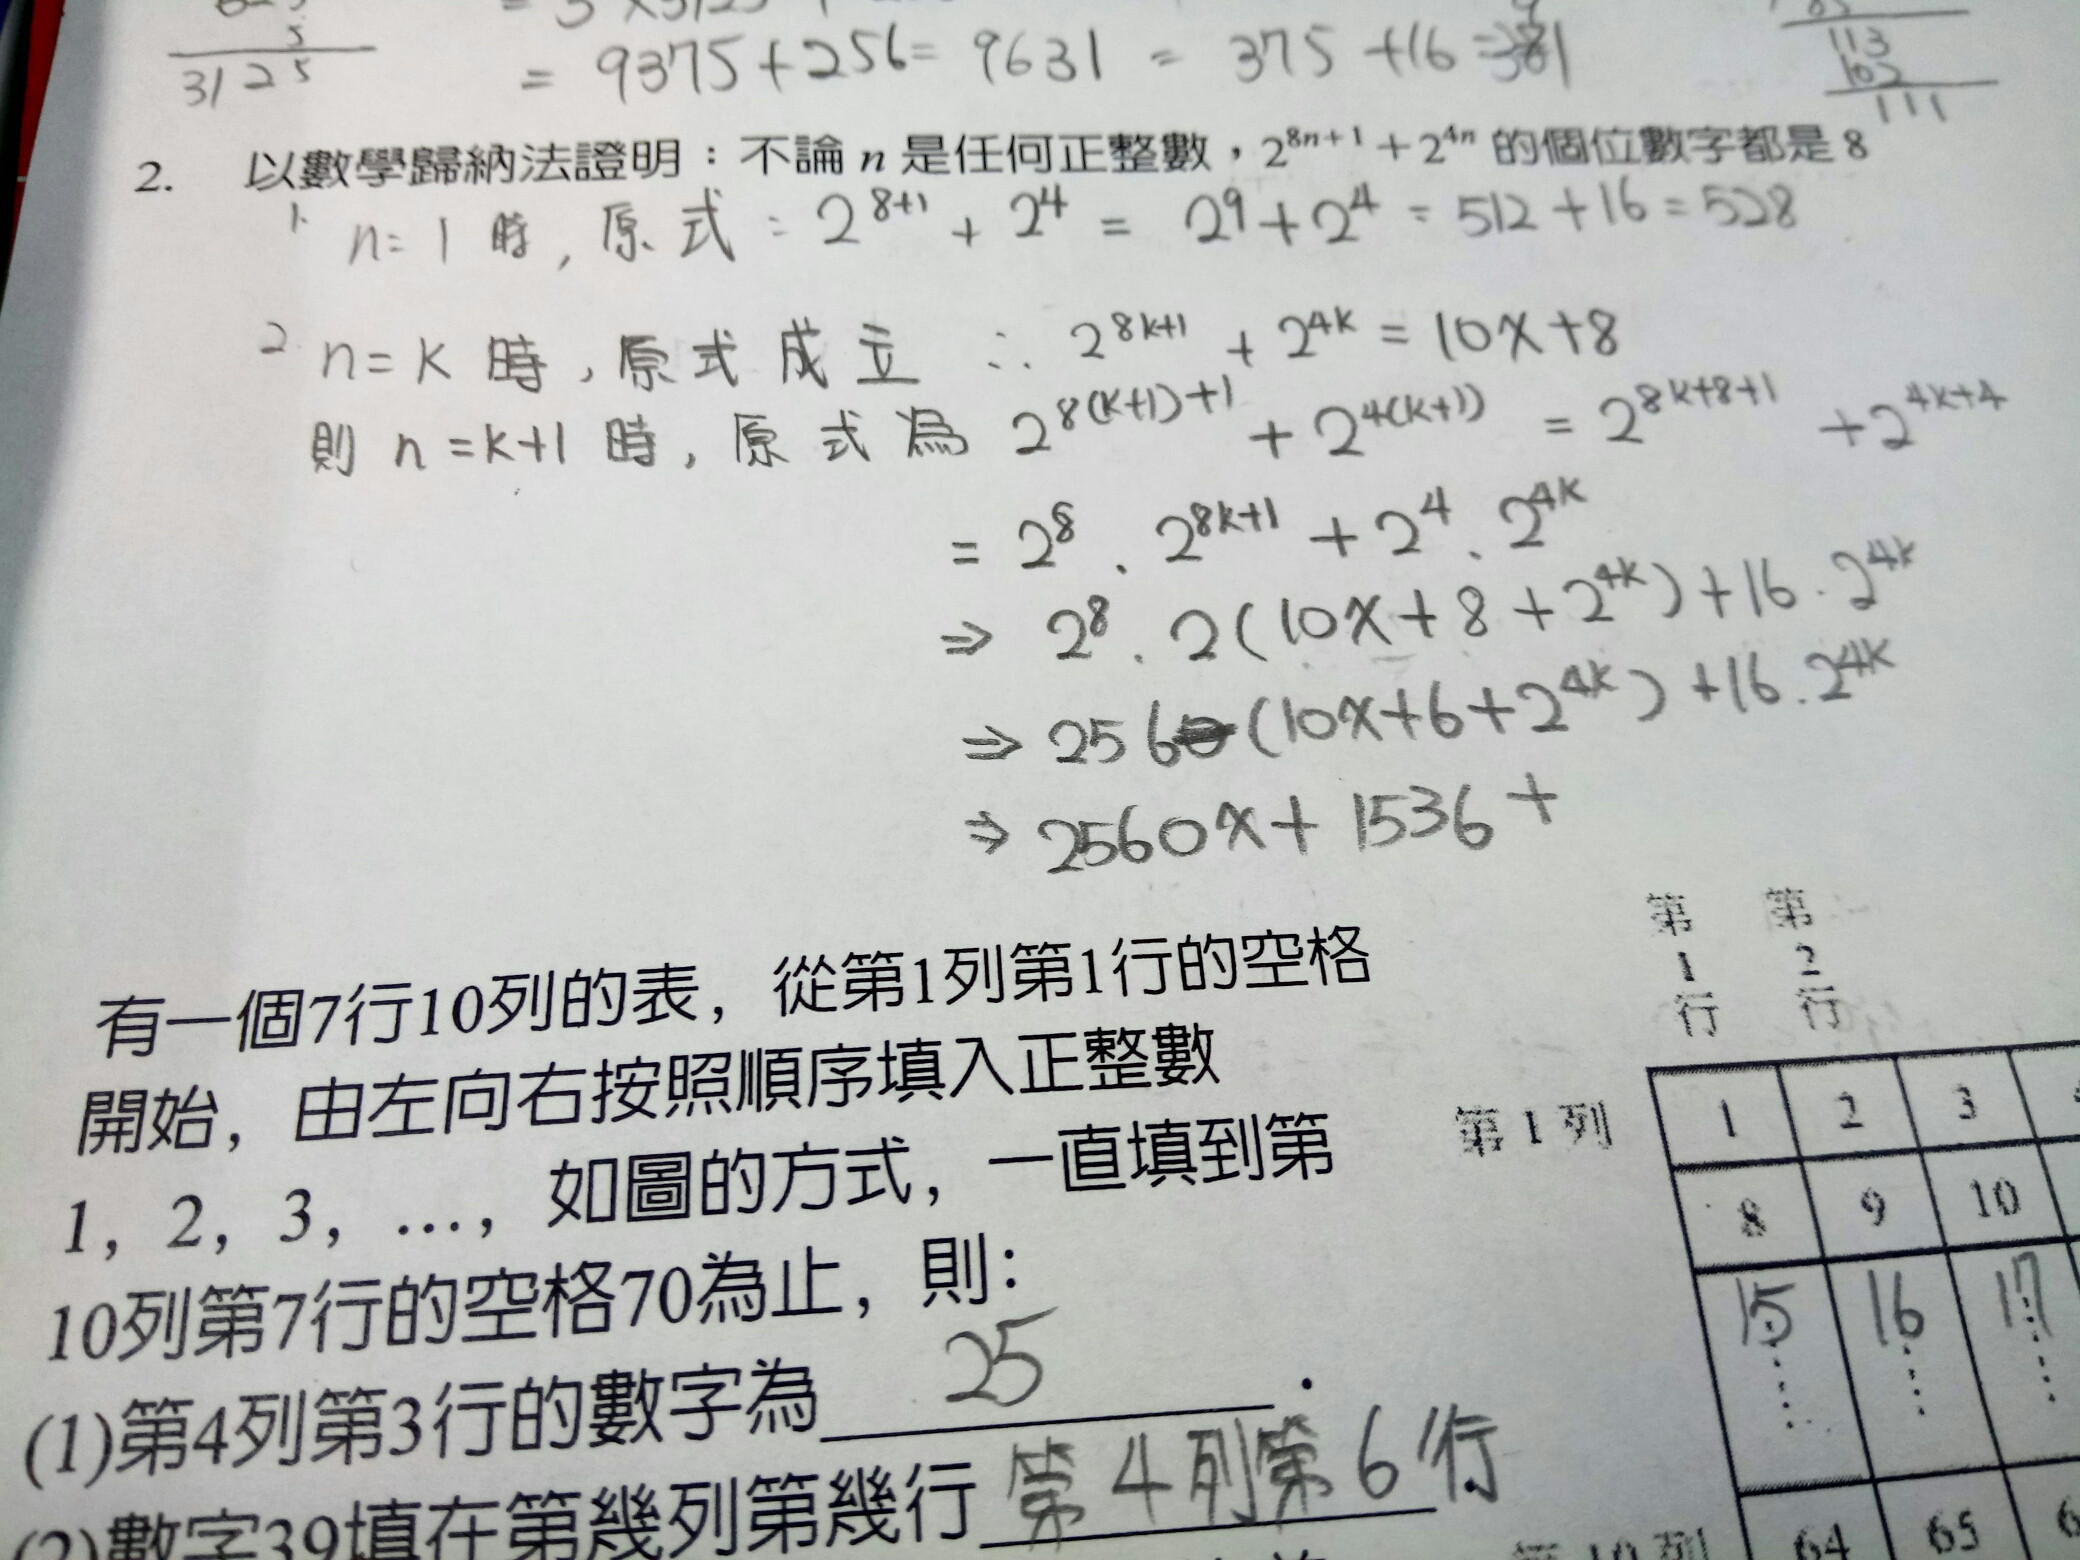 = 3 × 3125 +
5
3125
= 9375 + 256 = 9631 = 375 + 16 = 391
113
102
111
2. 以數學歸納法證明：不論 n 是任何正整數，2^{8n+1} + 2^{4n} 的個位數字都是 8
1. n = 1 時, 原式 = 2^{8+1} + 2^4 = 2^9 + 2^4 = 512 + 16 = 528
2. n = k 時, 原式成立 ∴ 2^{8k+1} + 2^{4k} = 10x+8
則 n = k+1 時, 原式為 2^{8(k+1)+1} + 2^{4(k+1)} = 2^{8k+8+1} + 2^{4k+4}
= 2^8 . 2^{8k+1} + 2^4 . 2^{4k}
⇒ 2^8 . 2(10x+8+2^{4k}) + 16 . 2^{4k}
⇒ 256(10x+6+2^{4k}) + 16 . 2^{4k}
⇒ 2560x + 1536 +
有一個7行10列的表，從第1列第1行的空格
開始，由左向右按照順序填入正整數
1，2，3，…，如圖的方式，一直填到第
10列第7行的空格70為止，則：
(1)第4列第3行的數字為 25 .
(2)數字39填在第幾列第幾行 第4列第6行.
第1行 第2行
第1列 1 2 3
8 9 10
15 16 17
第10列 64 65